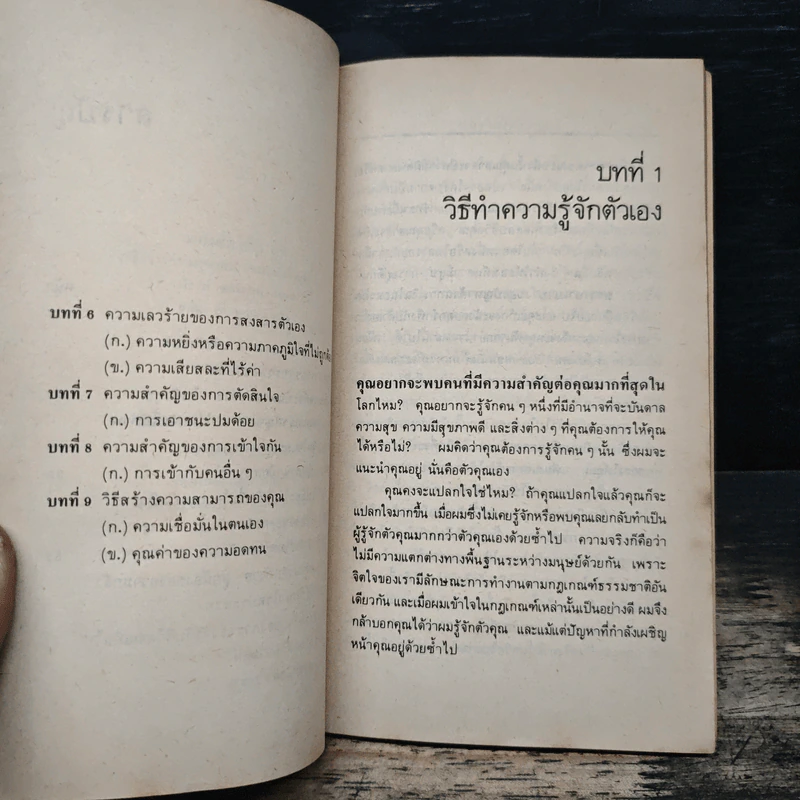 บทที่ 6 ความเลวร้ายของการสงสารตัวเอง
(ก.) ความหยิ่งหรือความภาคภูมิใจที่ไม่ถูก
(ข.) ความเสียสละที่ไร้ค่า
บทที่ 7 ความสำคัญของการตัดสินใจ
(ก.) การเอาชนะปมด้อย
บทที่ 8 ความสำคัญของการเข้าใจกัน
(ก.) การเข้ากับคนอื่น ๆ
บทที่ 9 วิธีสร้างความสามารถของคุณ
(ก.) ความเชื่อมั่นในตนเอง
(ข.) คุณค่าของความอดทน
บทที่ 1
วิธีทำความรู้จักตัวเอง
คุณอยากจะพบคนที่มีความสำคัญต่อคุณมากที่สุดใน
โลกไหม? คุณอยากจะรู้จักคน ๆ หนึ่งที่มีอำนาจที่จะบันดาล
ความสุข ความมีสุขภาพดี และสิ่งต่าง ๆ ที่คุณต้องการให้คุณ
ได้หรือไม่? ผมคิดว่าคุณต้องการรู้จักคน ๆ นั้น ซึ่งผมจะ
แนะนำคุณอยู่ นั่นคือตัวคุณเอง
คุณคงจะแปลกใจใช่ไหม? ถ้าคุณแปลกใจแล้วคุณก็จะ
แปลกใจมากขึ้น เมื่อผมซึ่งไม่เคยรู้จักหรือพบคุณเลยกลับทำเป็น
ผู้รู้จักตัวคุณมากกว่าตัวคุณเองด้วยซ้ำไป ความจริงก็คือว่า
ไม่มีความแตกต่างทางพื้นฐานระหว่างมนุษย์ด้วยกัน เพราะ
จิตใจของเรามีลักษณะการทำงานตามกฎเกณฑ์ธรรมชาติอัน
เดียวกัน และเมื่อผมเข้าใจในกฎเกณฑ์เหล่านั้นเป็นอย่างดี ผมจึง
กล้าบอกคุณได้ว่าผมรู้จักตัวคุณ และแม้แต่ปัญหาที่กำลังเผชิญ
หน้าคุณอยู่ด้วยซ้ำไป